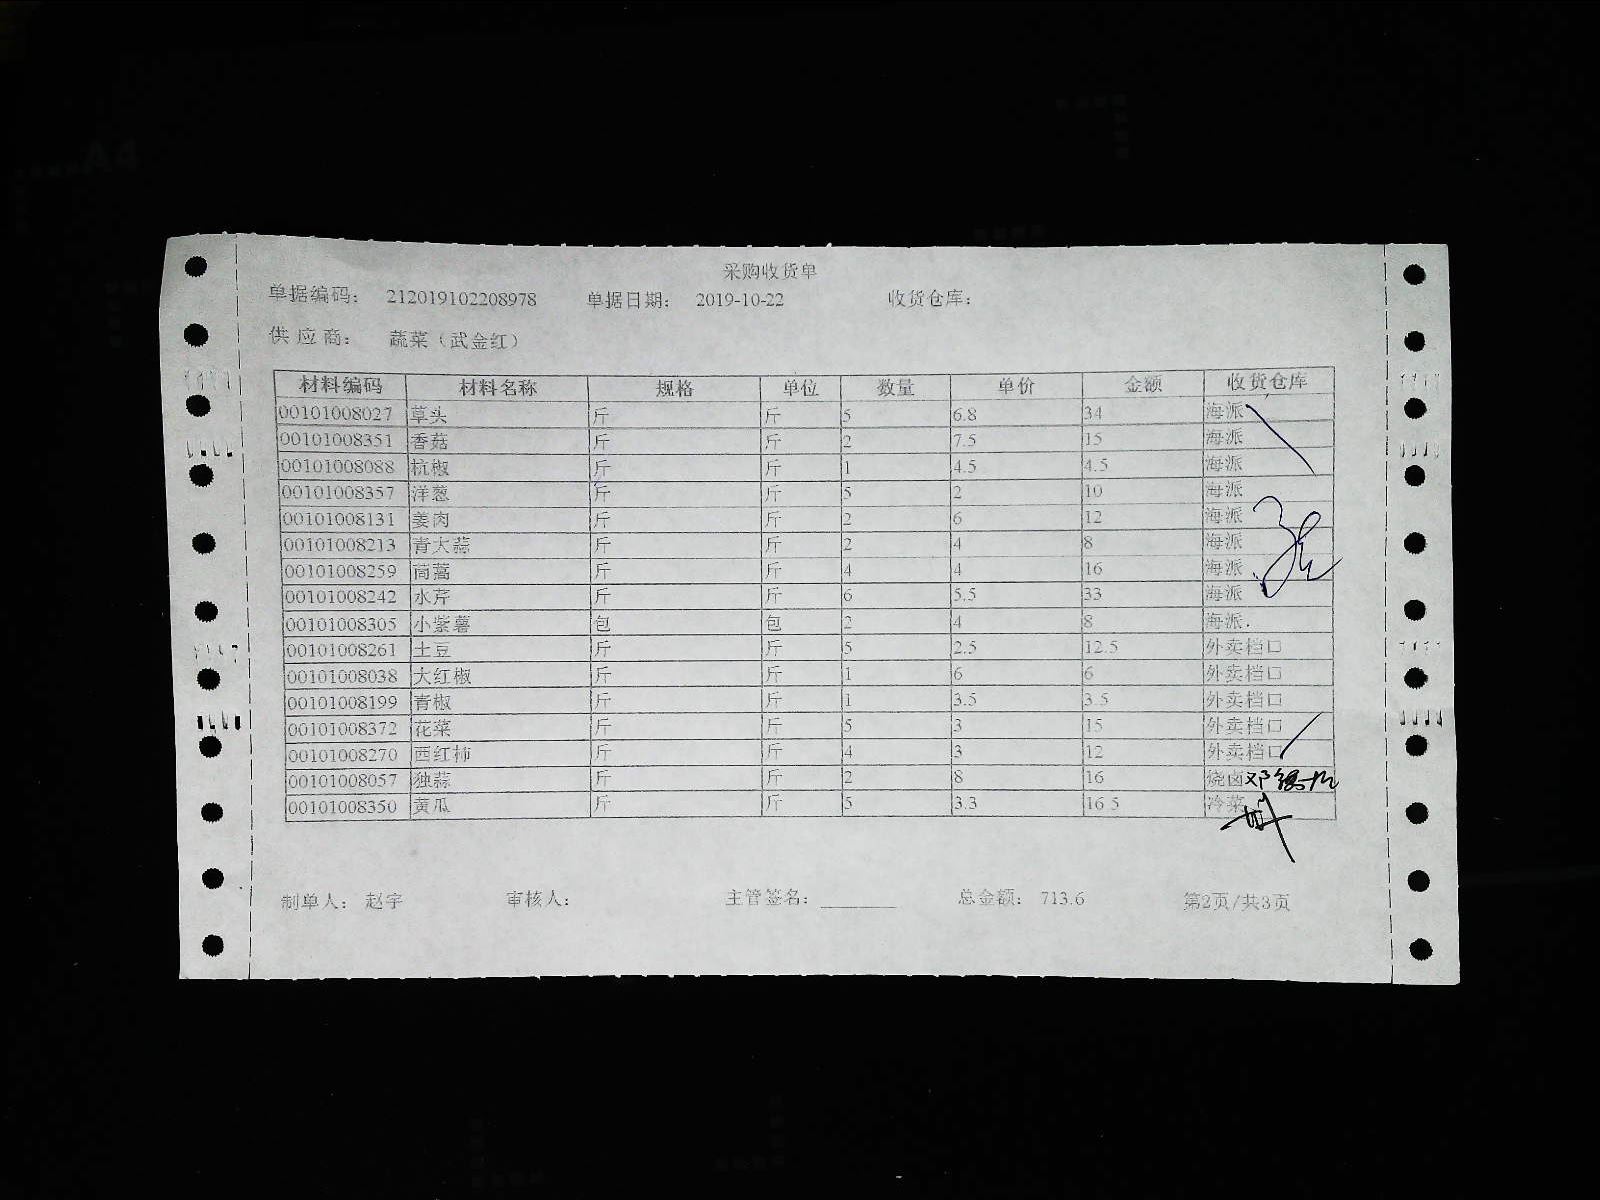 采购收货单
单据编码： 212019102208978 单据日期： 2019-10-22 收货仓库：
供 应 商： 蔬菜（武金红）
材料编码 材料名称 规格 单位 数量 单价 金额 收货仓库
00101008027 草头 斤 斤 5 6.8 34 海派
00101008351 香菇 斤 斤 2 7.5 15 海派
00101008088 杭椒 斤 斤 1 4.5 4.5 海派
00101008357 洋葱 斤 斤 5 2 10 海派
00101008131 姜肉 斤 斤 2 6 12 海派
00101008213 青大蒜 斤 斤 2 4 8 海派
00101008259 茼蒿 斤 斤 4 4 16 海派
00101008242 水芹 斤 斤 6 5.5 33 海派
00101008305 小紫薯 包 包 2 4 8 海派.
00101008261 土豆 斤 斤 5 2.5 12.5 外卖档口
00101008038 大红椒 斤 斤 1 6 6 外卖档口
00101008199 青椒 斤 斤 1 3.5 3.5 外卖档口
00101008372 花菜 斤 斤 5 3 15 外卖档口
00101008270 西红柿 斤 斤 4 3 12 外卖档口
00101008057 独蒜 斤 斤 2 8 16 烧卤
00101008350 黄瓜 斤 斤 5 3.3 16.5 冷菜
制单人： 赵宇 审核人： 主管签名：________ 总金额： 713.6 第2页/共3页